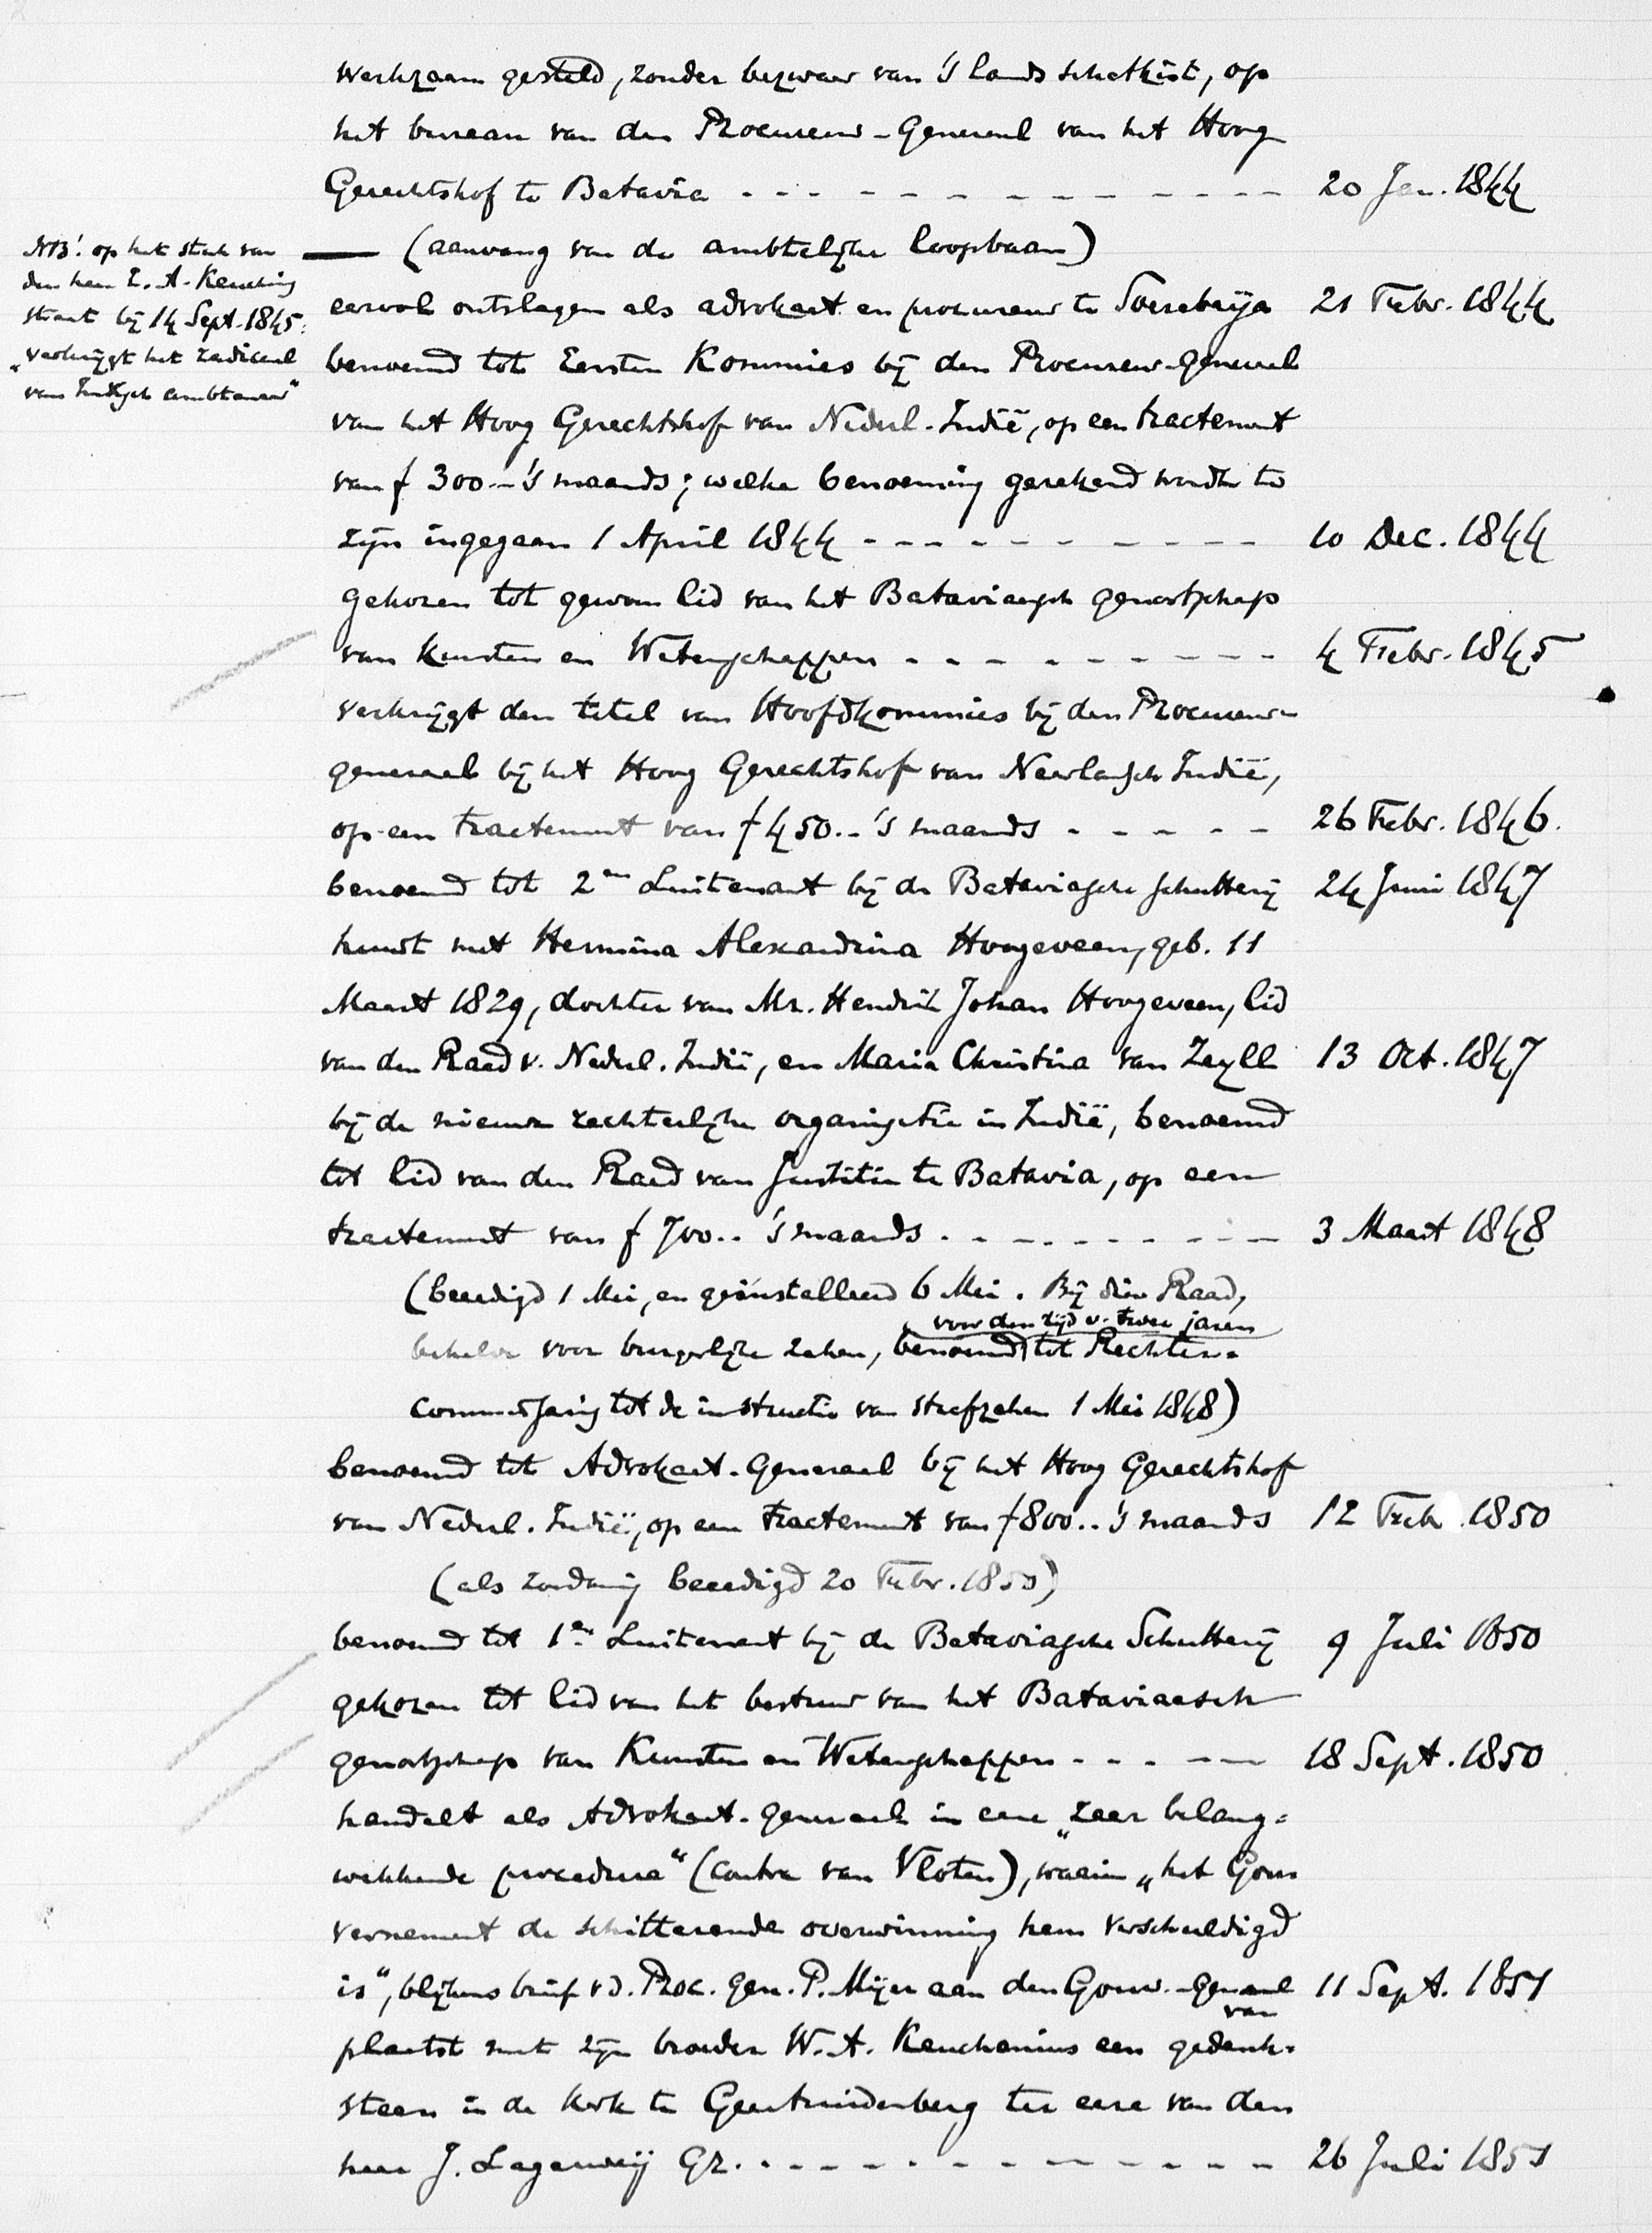 werkzaam gesteld, zonder bezwaar van 's lands schatkist, op
het bureau van den Procureur-Generaal van het Hoog
Gerechtshof te Batavia - - - - - - - - - - - - - - 20 Jan. 1844
— (aanvang van de ambtelijke loopbaan)
NB! op het stuk van
den heer L. A. Keuching
staat bij 14 Sept. 1845:
„verkrijgt het radicaal
van Indisch ambtenaar"
eervol ontslagen als advokaat en procureur te Soerabaija 21 Febr. 1844
benoemd tot Eersten Kommies bij den Procureur-generaal
van het Hoog Gerechtshof van Nederl. Indië, op een tractement
van f 300.- 's maands; welke benoeming gerekend wordt te
zijn ingegaan 1 April 1844 - - - - - - - - - - 10 Dec. 1844
gekozen tot gewoon lid van het Bataviaasch genootschap
van Kunsten en Wetenschappen - - - - - - - - - 4 Febr. 1845
verkrijgt den titel van Hoofdkommies bij den Procureur-
generaal bij het Hoog Gerechtshof van Neerlandsch Indië,
op een tractement van f 450.- 's maands - - - - - 26 Febr. 1846.
benoemd tot 2en Luitenant bij de Bataviasche schutterij 24 Juni 1847
huwt met Hermina Alexandrina Hoogeveen, geb. 11
Maart 1829, dochter van Mr. Hendrik Johan Hoogeveen, lid
van den Raad v. Nederl. Indië, en Maria Christina van Zeyll 13 Oct. 1847
bij de nieuwe rechterlijke organisatie in Indië, benoemd
tot lid van den Raad van Justitie te Batavia, op een
tractement van f 700.. 's maands - - - - - - - - - - 3 Maart 1848
(beeedigd 1 Mei, en geïnstalleerd 6 Mei. Bij dien Raad,
voor den tijd v. twee jaren
behalve voor burgerlijke zaken, benoemd tot Rechter-
commissaris tot de instructie van strafzaken 1 Mei 1848)
benoemd tot Advokaat-Generaal bij het Hoog Gerechtshof
van Nederl. Indië, op een tractement van f 800.. 's maands 12 Feb .1850
(als zoodanig beeedigd 20 Febr. 1850)
benoemd tot 1en Luitenant bij de Bataviasche Schutterij 9 Juli 1850
gekozen tot lid van het bestuur van het Bataviaasch
genootschap van Kunsten en Wetenschappen - - - - - 18 Sept. 1850
handelt als Advokaat-generaal in eene „zeer belang=
wekkende procedure" (contra van Vloten), waarin „het Gou=
vernement de schitterende overwinning hem verschuldigd
is", blijkens brief v.d. Proc. Gen. P. Mijer aan den Gouv.-generaal 11 Sept. 1851
van
plaatst met zijn broeder W. A. Keuchenius een gedenk=
steen in de kerk te Geertruidenberg ter eere van den
heer J. Lagerweij Gz. - - - - - - - - - - - - - - 26 Juli 1851